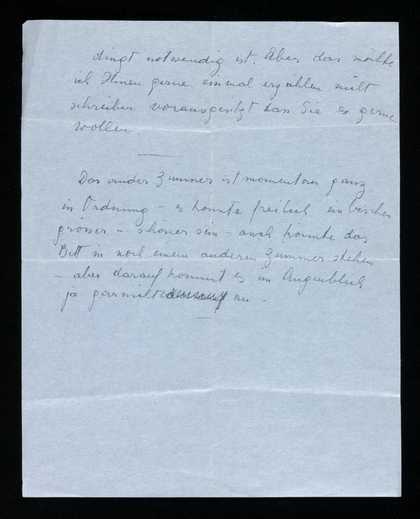 dingt notwendig ist. Aber das möchte
ich Ihnen gerne einmal erzählen nicht
schreiben vorausgesetzt dass Sie es gerne
wollen
Das ander Zimmer ist momentan ganz
in Ordnung – es könnte freilich ein bischen
grösser – schöner sein – auch könnte das
Bett in noch einem anderen Zimmer stehen
– aber darauf kommt es im Augenblick
ja gar nicht an –